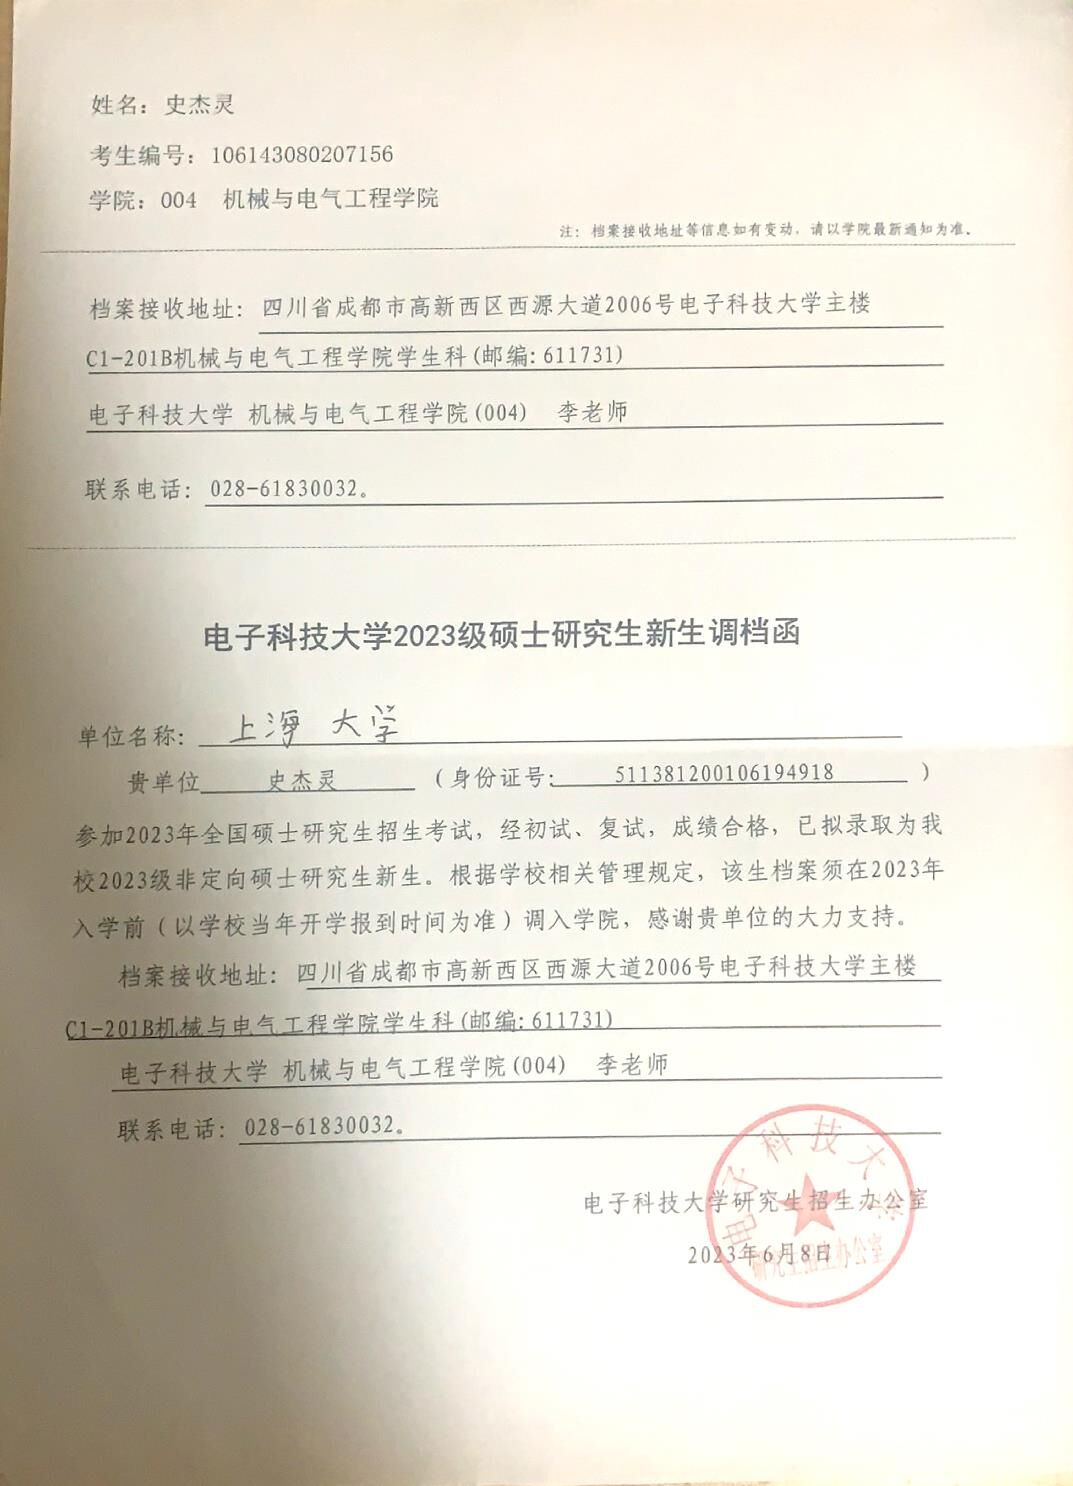 姓名：史杰灵
考生编号：106143080207156
学院：004 机械与电气工程学院
注：档案接收地址等信息如有变动，请以学院最新通知为准。
档案接收地址：四川省成都市高新西区西源大道2006号电子科技大学主楼
C1-201B机械与电气工程学院学生科(邮编:611731)
电子科技大学 机械与电气工程学院(004) 李老师
联系电话：028-61830032。
电子科技大学2023级硕士研究生新生调档函
单位名称：上海大学
贵单位 史杰灵 （身份证号: 511381200106194918 ）
参加2023年全国硕士研究生招生考试，经初试、复试，成绩合格，已拟录取为我
校2023级非定向硕士研究生新生。根据学校相关管理规定，该生档案须在2023年
入学前（以学校当年开学报到时间为准）调入学院，感谢贵单位的大力支持。
档案接收地址：四川省成都市高新西区西源大道2006号电子科技大学主楼
C1-201B机械与电气工程学院学生科(邮编:611731)
电子科技大学 机械与电气工程学院(004) 李老师
联系电话：028-61830032。
电子科技大学
电子科技大学研究生招生办公室
2023年6月8日
研究生招生办公室